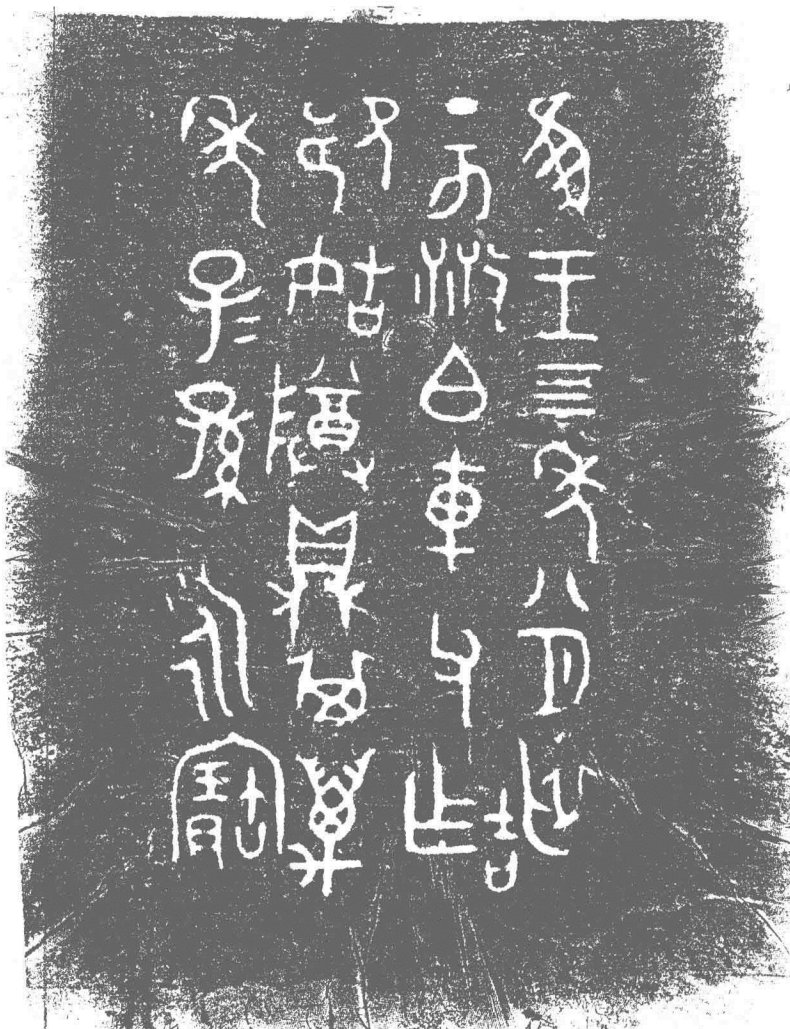 隹王亖年八月初吉
丁亥散白車父乍
姞尊鼎其萬
年子=孫永寶